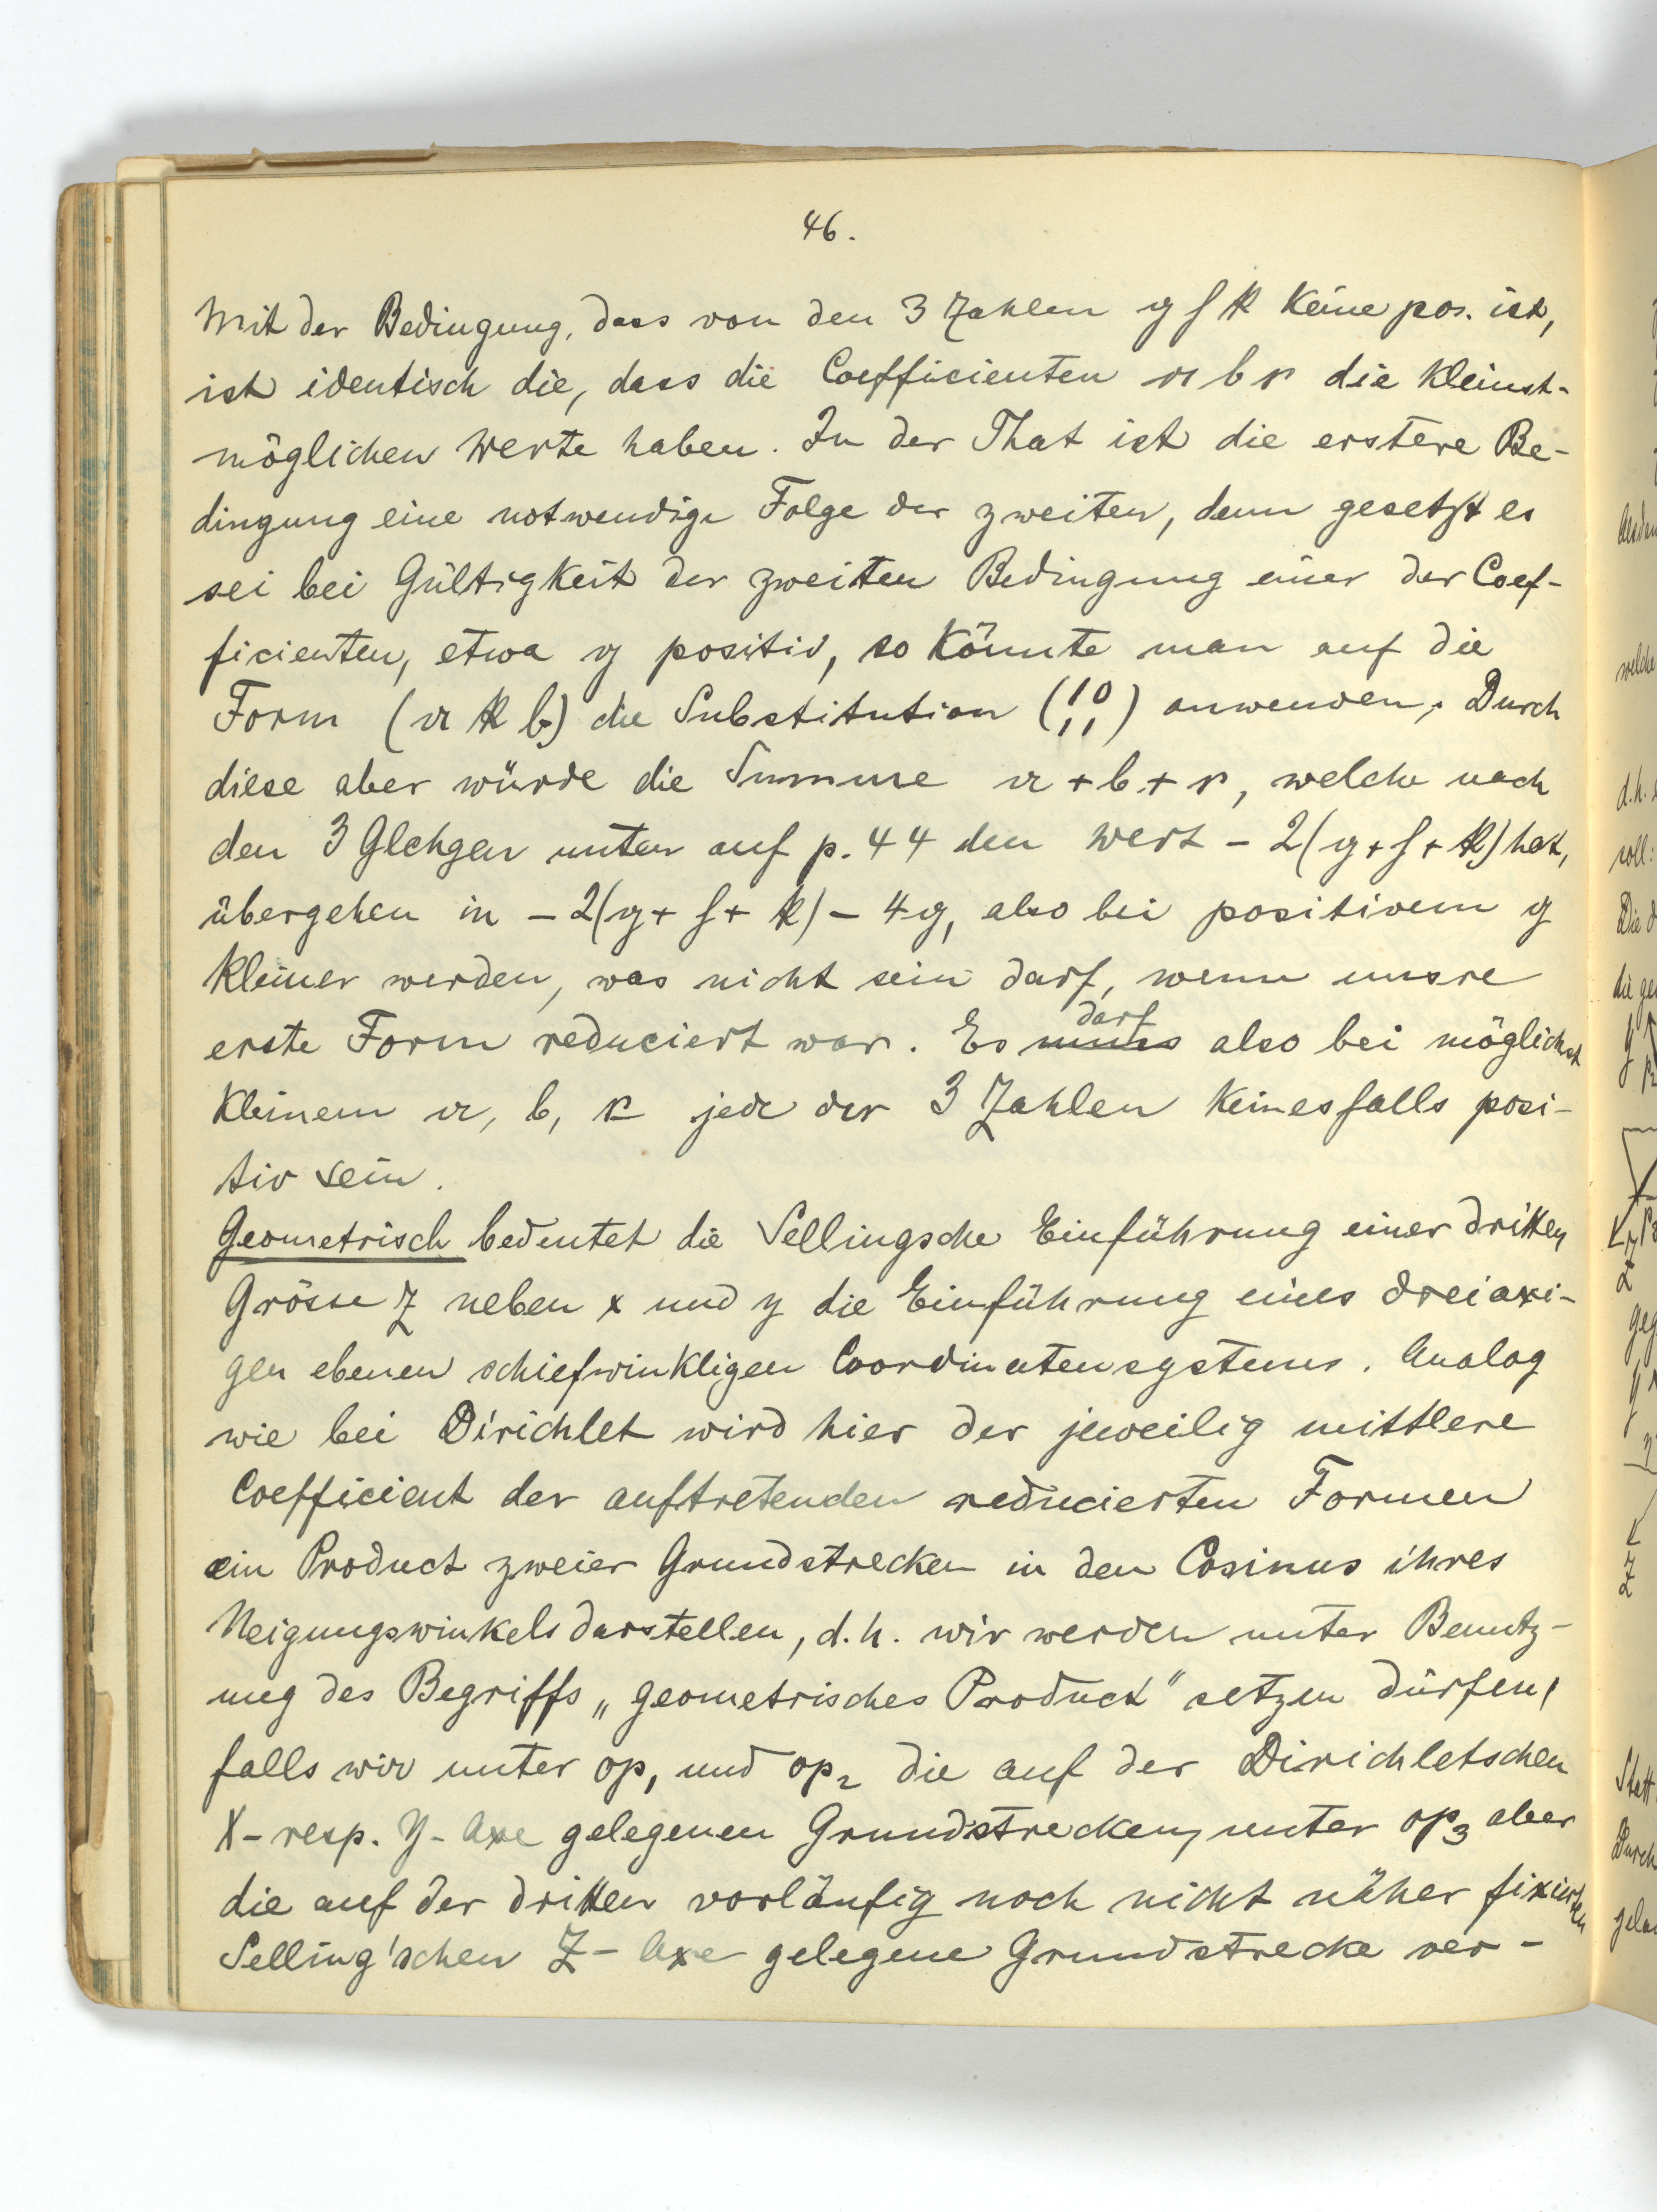 46.
Mit der Bedingung, dass von den 3 Zahlen g f k keine pos. ist,
ist identisch die, dass die Coefficienten a b c die kleinst-
möglichen Werte haben. In der That ist die erstere Be-
dingung eine notwendige Folge der zweiten, denn gesetzt es
sei bei Gültigkeit der zweiten Bedingung einer der Coef-
ficienten, etwa g positiv, so könnte man auf die
Form (a k b) die Substitution (1 0 1 1) anwenden. Durch
diese aber würde die Summe a + b + c, welche nach
den 3 Glchgen unten auf p. 44 den Wert - 2(g + f + k) hat,
übergehen in - 2(g + f + k) - 4g, also bei positivem g
kleiner werden, was nicht sein darf, wenn unsre
erste Form reduciert war. Es muss darf also bei möglichst
kleinem a, b, c jede der 3 Zahlen keinesfalls posi-
tiv sein.
Geometrisch bedeutet die Sellingsche Einführung einer dritten
Grösse Z neben x und y die Einführung eines dreiaxi-
gen ebenen schiefwinkligen Coordinatensystems. Analog
wie bei Dirichlet wird hier der jeweilig mittlere
Coefficient der auftretenden reducierten Formen
ein Product zweier Grundstrecken in den Cosinus ihres
Neigungswinkels darstellen, d.h. wir werden unter Benutz-
ung des Begriffs „geometrisches Product" setzen dürfen,
falls wir unter op₁ und op₂ die auf der Dirichletschen
X- resp. Y- Axe gelegenen Grundstrecken, unter op₃ aber
die auf der dritten vorläufig noch nicht näher fixierten
Selling'schen Z - Axe gelegene Grundstrecke ver-